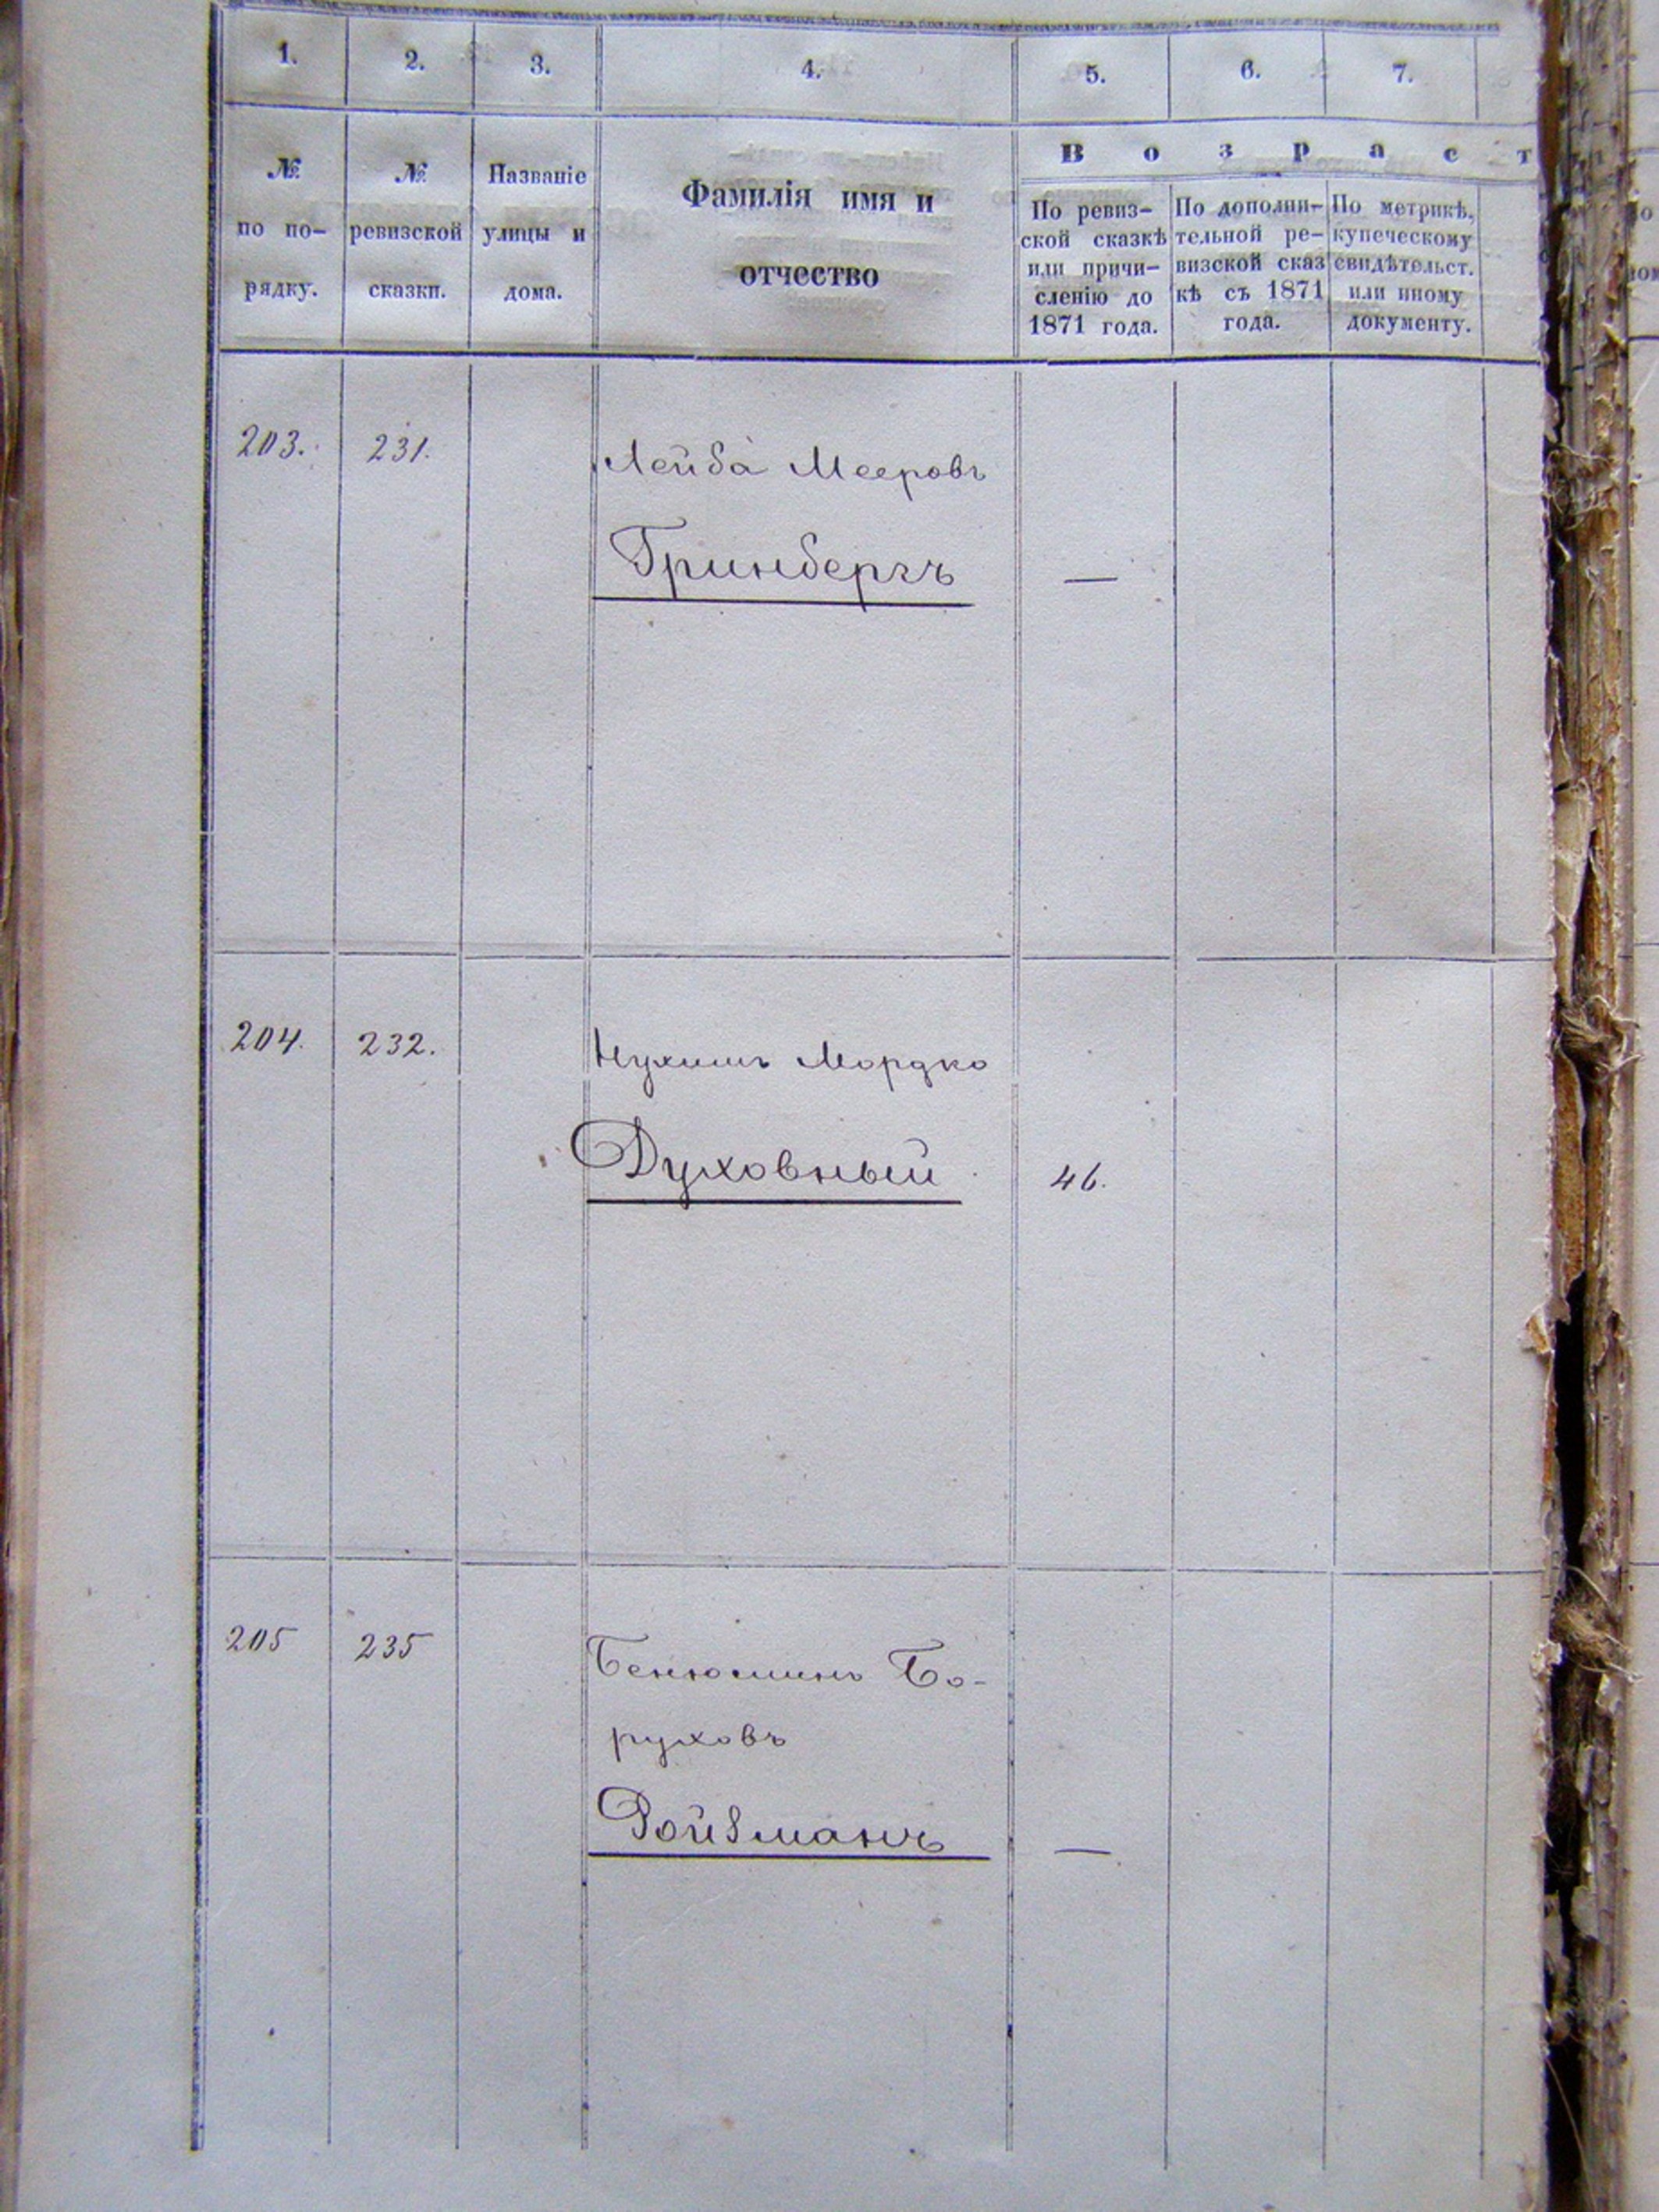 1. 2. 3. 4. 5. 6. 7.
В о з р а с т
№ по по- рядку.
№ ревизской сказки.
Названіе улицы и дома.
Фамилія имя и
отчество
По ревиз-
ской сказкѣ
или причи-
сленію до
1871 года.
По дополни-
тельной ре-
визской сказ
кѣ съ 1871
года.
По метрикѣ,
купеческому
свидѣтельст.
или иному
документу.
203. 231. Лейба Мееровъ
Гринбергъ —
204. 232. Нухимъ Мордко
Духовный 46.
205 235 Бенюминъ Бо-
руховъ
Ройзманъ —